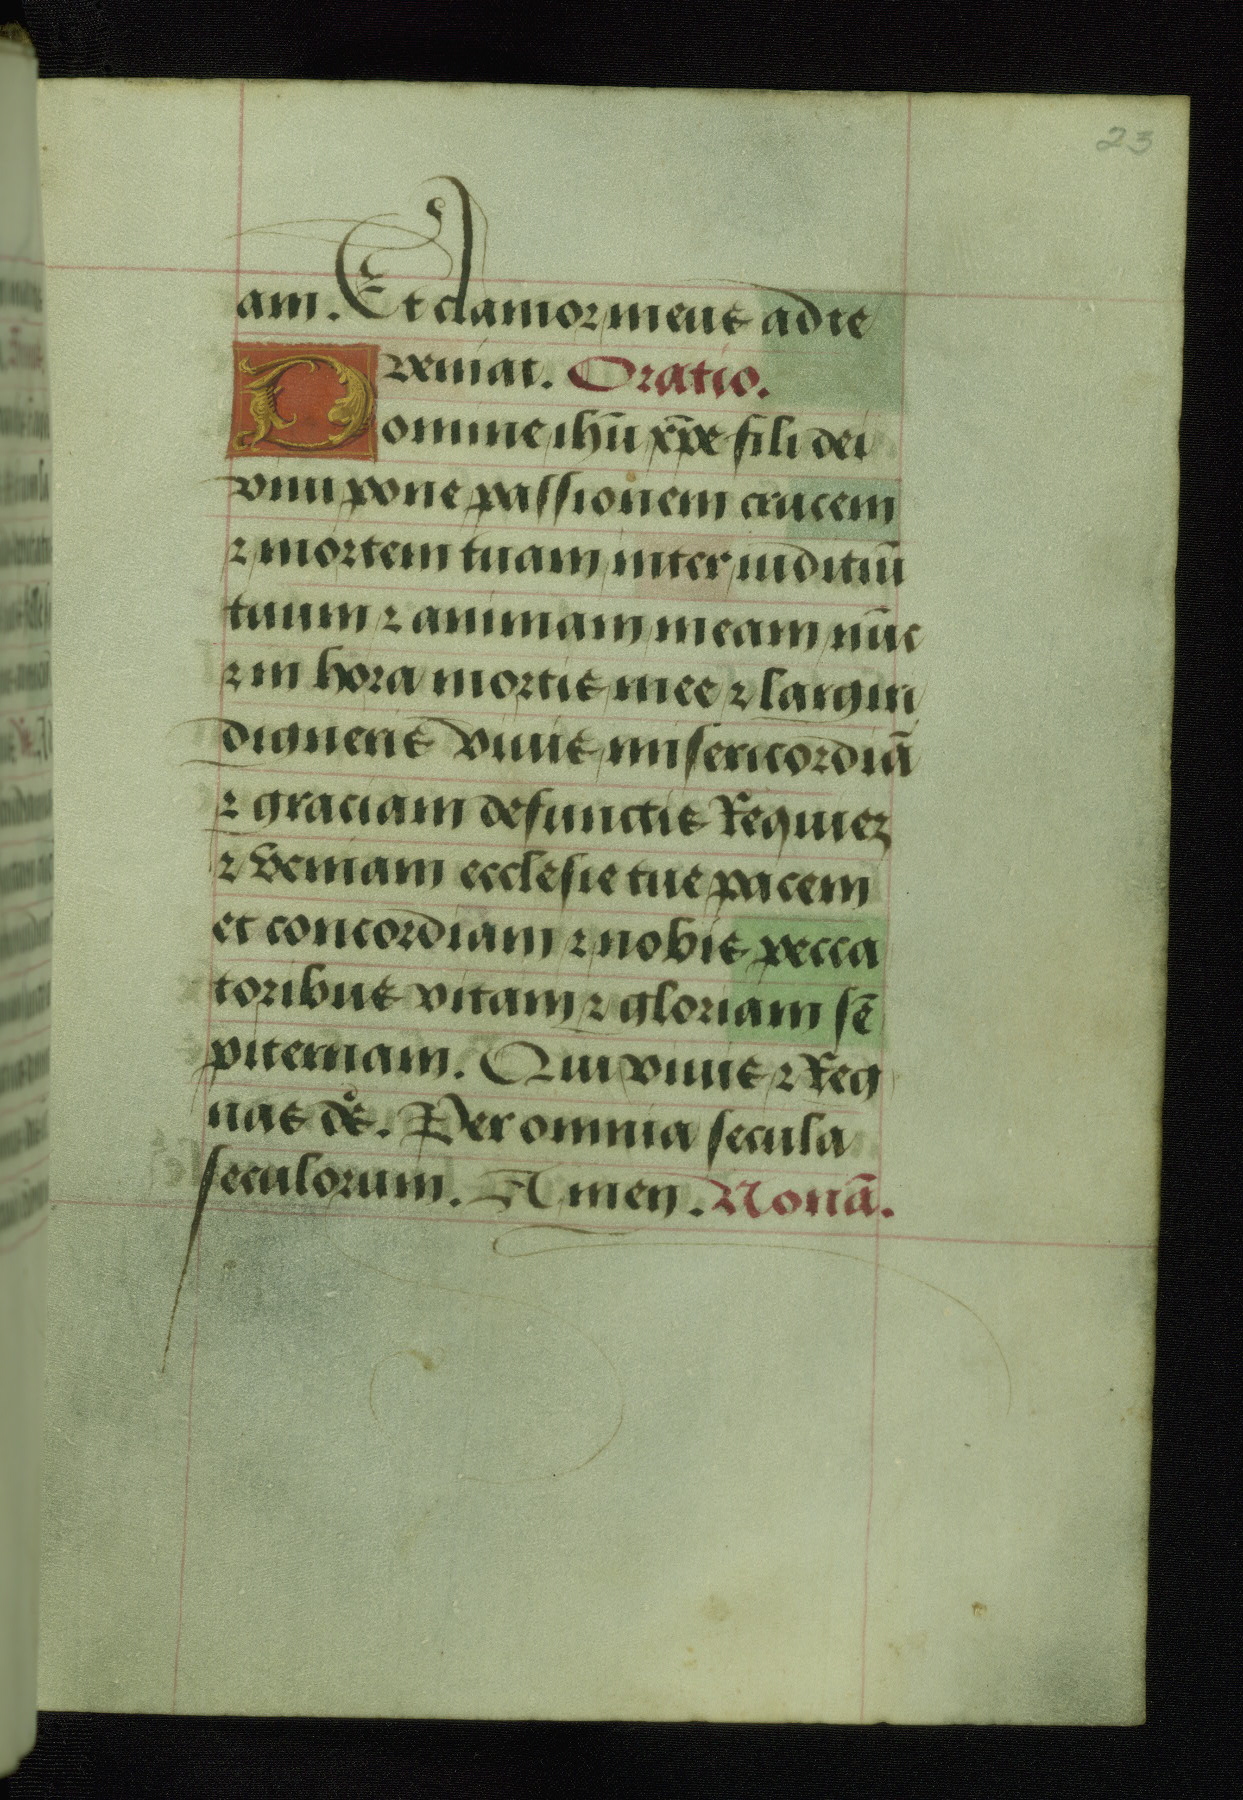 23
am. Et clamor meus ad te
veniat. Oratio.
Domine ihū xp̄e fili dei
viui pone passionem crucem
⁊ mortem tuam inter iuditiū
tuum ⁊ animam meam nūc
⁊ in hora mortis mee ⁊ largiri
digneris viuis misericordiā
⁊ graciam defunctis Requiez
⁊ veniam ecclesie tue pacem
et concordiam ⁊ nobis pecca
toribus vitam ⁊ gloriam sē
piternam. Qui viuis ⁊ Reg
nas. Per omnia secula
seculorum. Amen. Nonā.